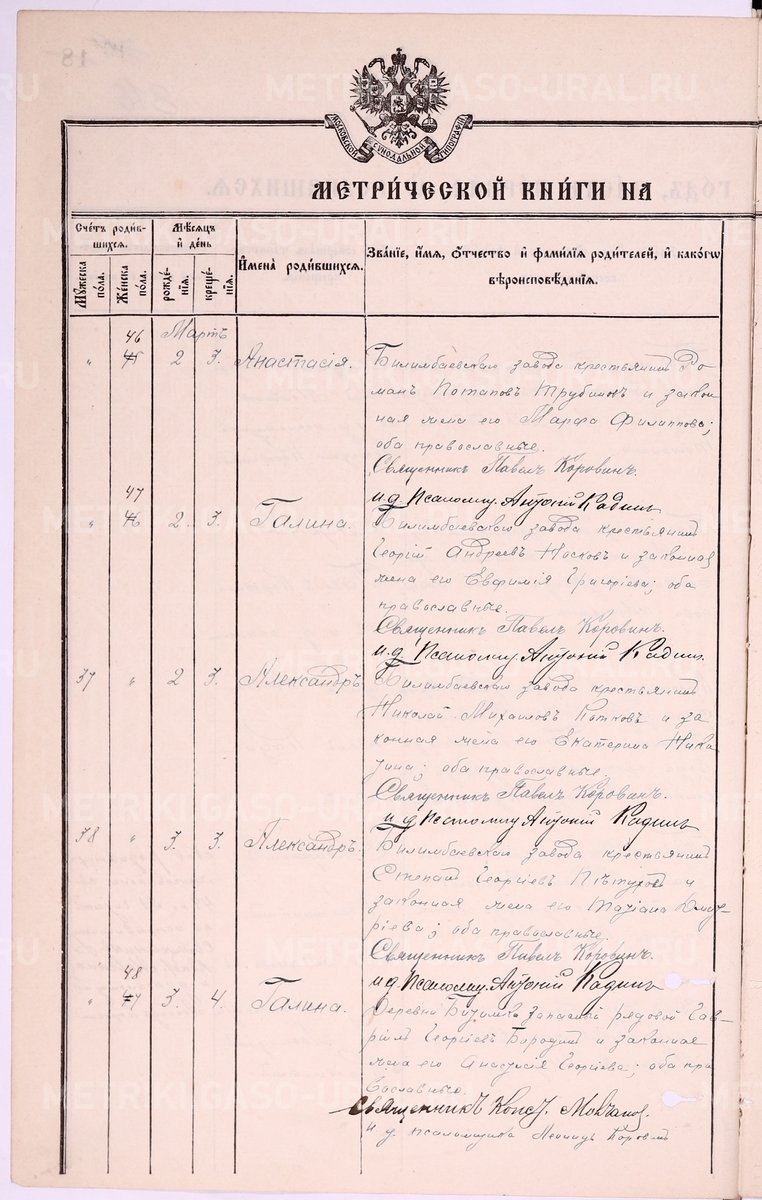 18
МОСКОВСКОЙ СѴНОДАЛЬНОЙ ТИПОГРАФІИ
МЕТРИ́ЧЕСКОЙ КНИ́ГИ НА
Счéтъ роди́в-
шихся.
Мѣ́сяцъ
и҆ де́нь
И҆мена̀ роди́вшихся.
Зва́нїе, и҆́мѧ, ѻ҆́тчество и҆ фами́лїѧ роди́телей, и҆ како́гѡ
вѣроисповѣ́данїѧ.
Мꙋ́жеска
по́ла.
Же́нска
по́ла.
рожде́-
нїѧ.
креще́-
нїѧ.
46 Мартъ
„ 45 2 3. Анастасія.
Билимбаевскаго завода крестьянинъ Ро
манъ Потаповъ Трубинъ и закон
ная жена его Марѳа Филиппова;
оба православные.
Священникъ Павелъ Коровинъ.
и д Псаломщ. Антоній Кадинъ
47
„ 46 2. 3. Галина.
Билимбаевскаго завода крестьянинъ
Георгій Андреевъ Носковъ и законная
жена его Евфимія Григоріева; оба
православные.
Священникъ Павелъ Коровинъ.
и. д Псаломщ. Антоній Кадинъ.
37 „ 2 3. Александръ
Билимбаевскаго завода крестьянинъ
Николай Михаиловъ и за
конная жена его Екатерина
оба православные
Священникъ Павелъ Коровинъ.
и д Псаломщ Антоній Кадинъ
38 „ 3. 3. Александръ.
Билимбаевскаго завода крестьянинъ
Степанъ Георгіевъ Пѣтуховъ и
законная жена его Татіана Дмит-
ріева; оба православные
Священникъ Павелъ Коровинъ.
и д Псаломщ. Антоній Кадинъ
48
„ 47 3. 4. Галина.
Деревни запасный рядовой Гав-
ріилъ Георгіевъ Бородинъ и законная
жена его Анастасія Георгіева; оба пра
вославные.
Священникъ Конст. Молчанов.
и д. псаломщика Леонидъ Коровинъ
METRIKI.GASO-URAL.RU